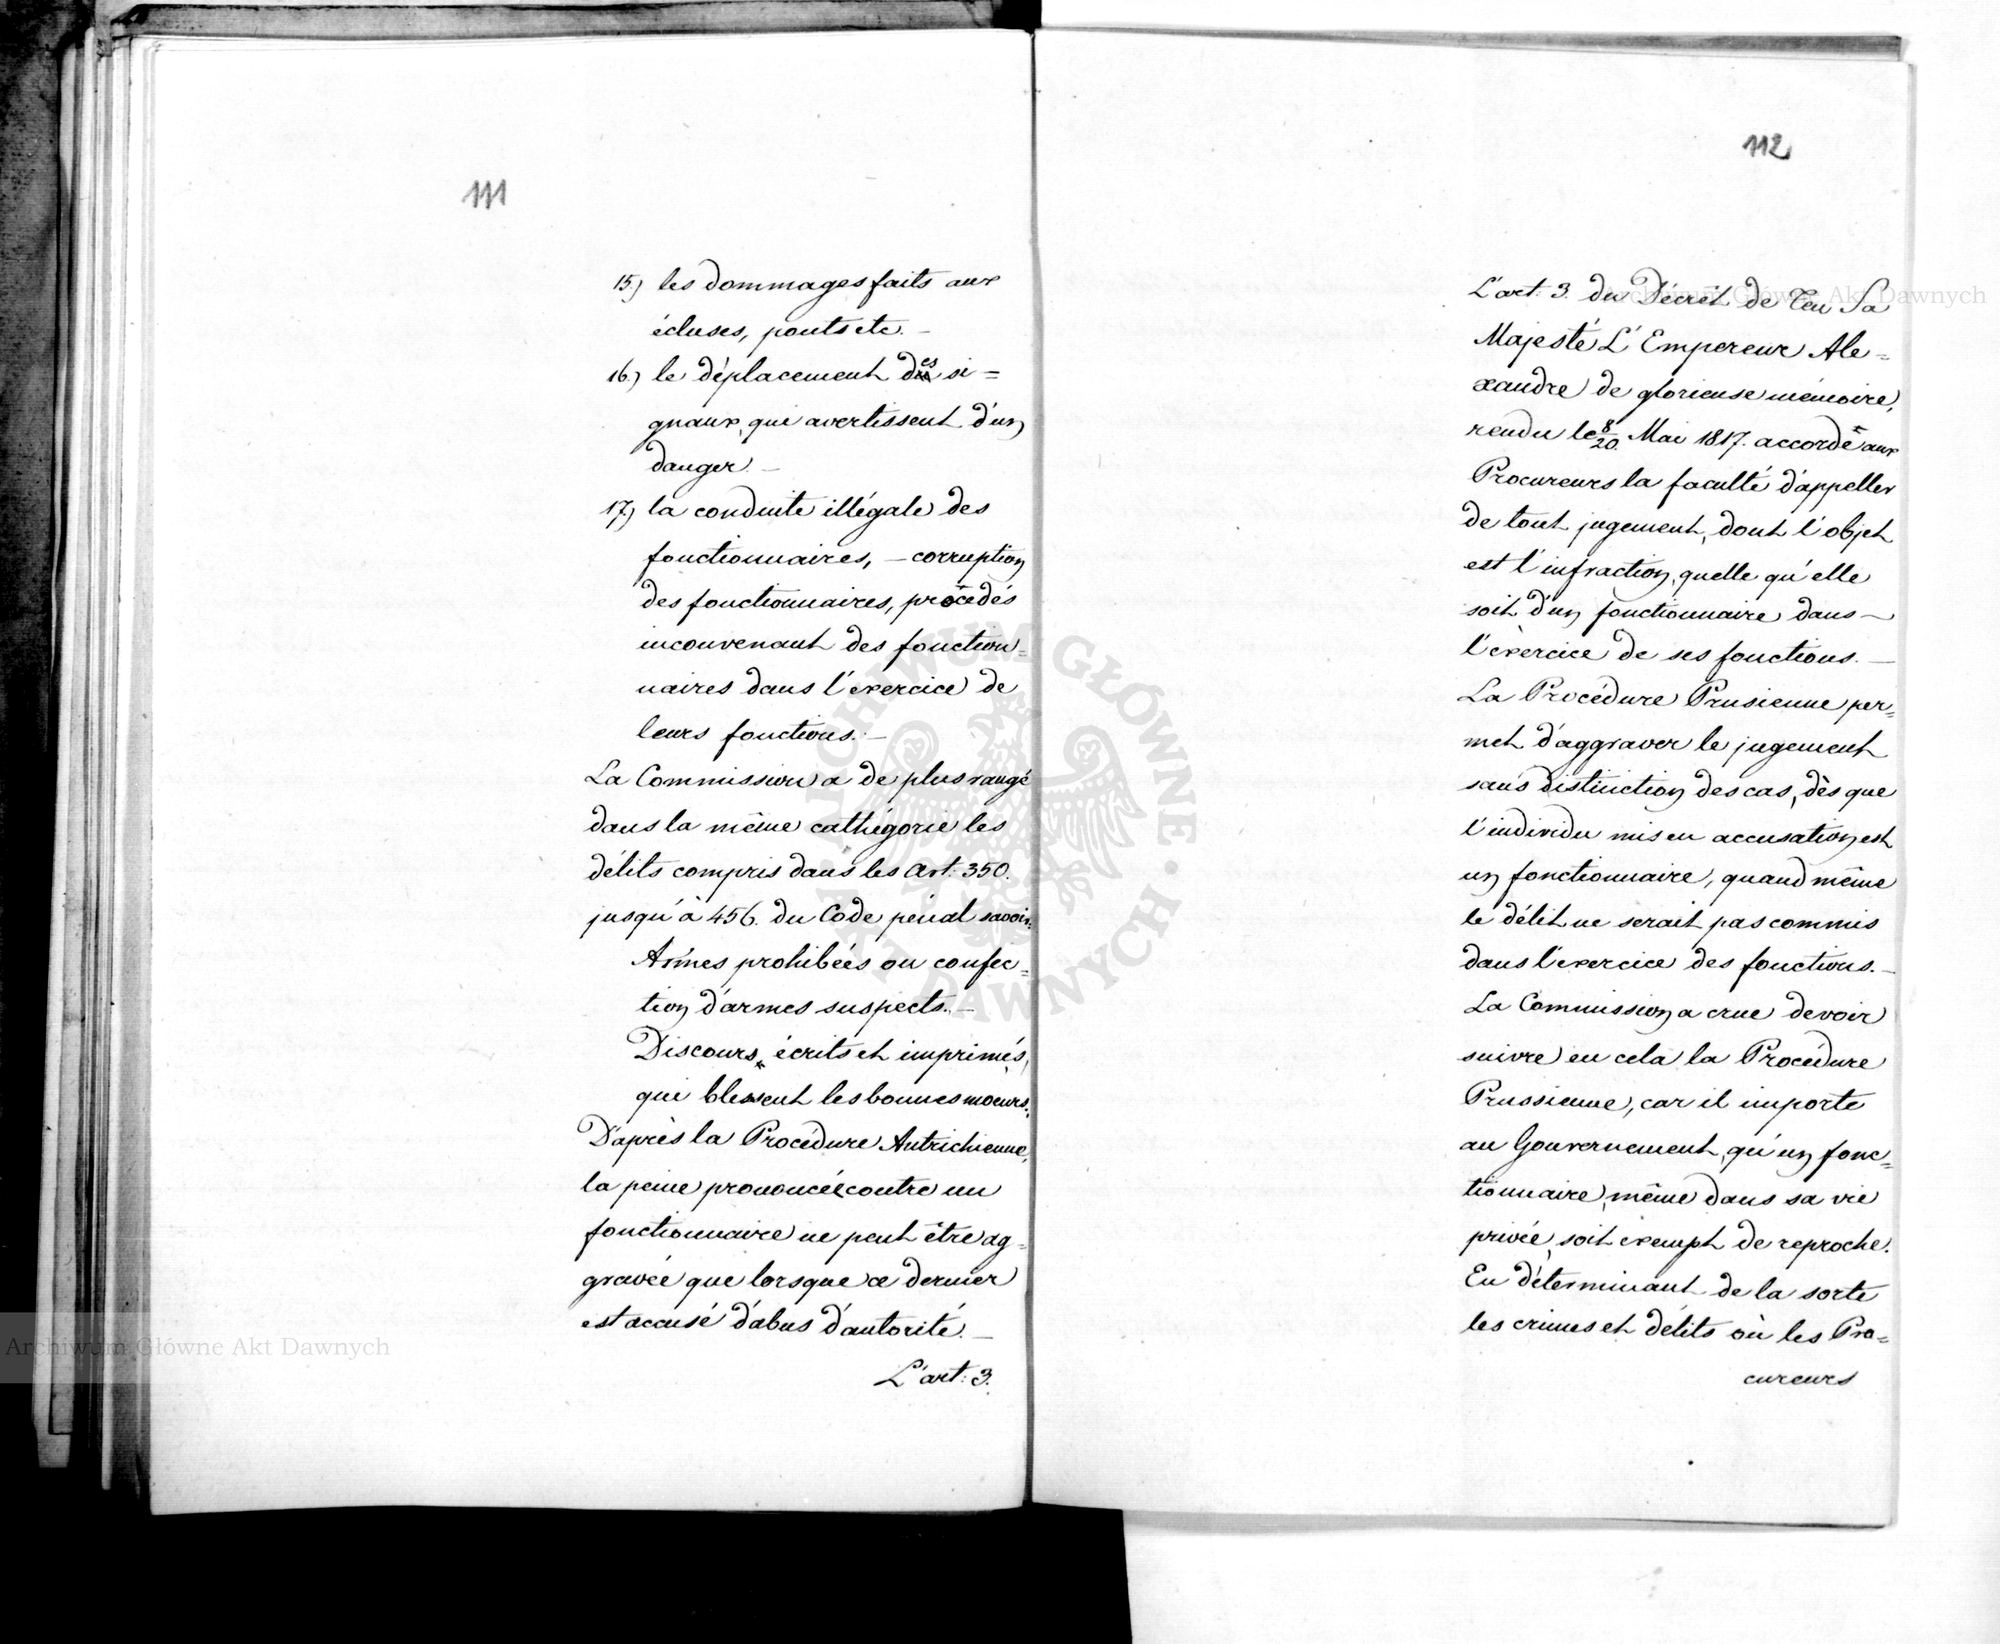 111
15.) les dommages faits aux
écluses, ponts etc. –
16.) le déplacement des si=
gnaux, qui avertissent d'un
danger. –
17.) la conduite illégale des
fonctionnaires, – corruption
des fonctionnaires, procédés
inconvenant des fonction=
naires dans l'exercice de
leurs fonctions. –
La Commission a de plus rangé
dans la même cathégorie les
délits compris dans les Art: 350.
jusqu'à 456. du Code pénal savoir:
Armes prohibées ou confec=
tion d'armes suspects. –
Discours, écrits et imprimés,
qui blessent les bonnes moeurs.
D'après la Procédure Autrichienne,
la peine prononcée contre un
fonctionnaire ne peut être ag=
gravée que lorsque ce dernier
est accusé d'abus d'autorité. –
L'art: 3.
112
L'art: 3. du Décrêt de feu Sa
Majesté L'Empereur Ale=
xandre de glorieuse mémoire,
rendu le 8/20. Mai 1817. accorde aux
Procureurs la faculté d'appeller
de tout jugement, dont l'objet
est l'infraction, quelle qu'elle
soit, d'un fonctionnaire dans –
l'exercice de ses fonctions. –
La Procédure Prusienne per=
met d'aggraver le jugement
sans distinction des cas, dès que
l'individu mis en accusation est
un fonctionnaire, quand même
le délit ne serait pas commis
dans l'exercice des fonctions. –
La Commission a crue devoir
suivre en cela la Procédure
Prussienne, car il importe
au Gouvernement, qu'un fonc=
tionnaire, même dans sa vie
privée, soit exempt de reproche.
En déterminant de la sorte
les crimes et délits où les Pro=
cureurs
Archiwum Główne Akt Dawnych
Archiwum Główne Akt Dawnych
ARCHIWUM GŁÓWNE AKT DAWNYCH